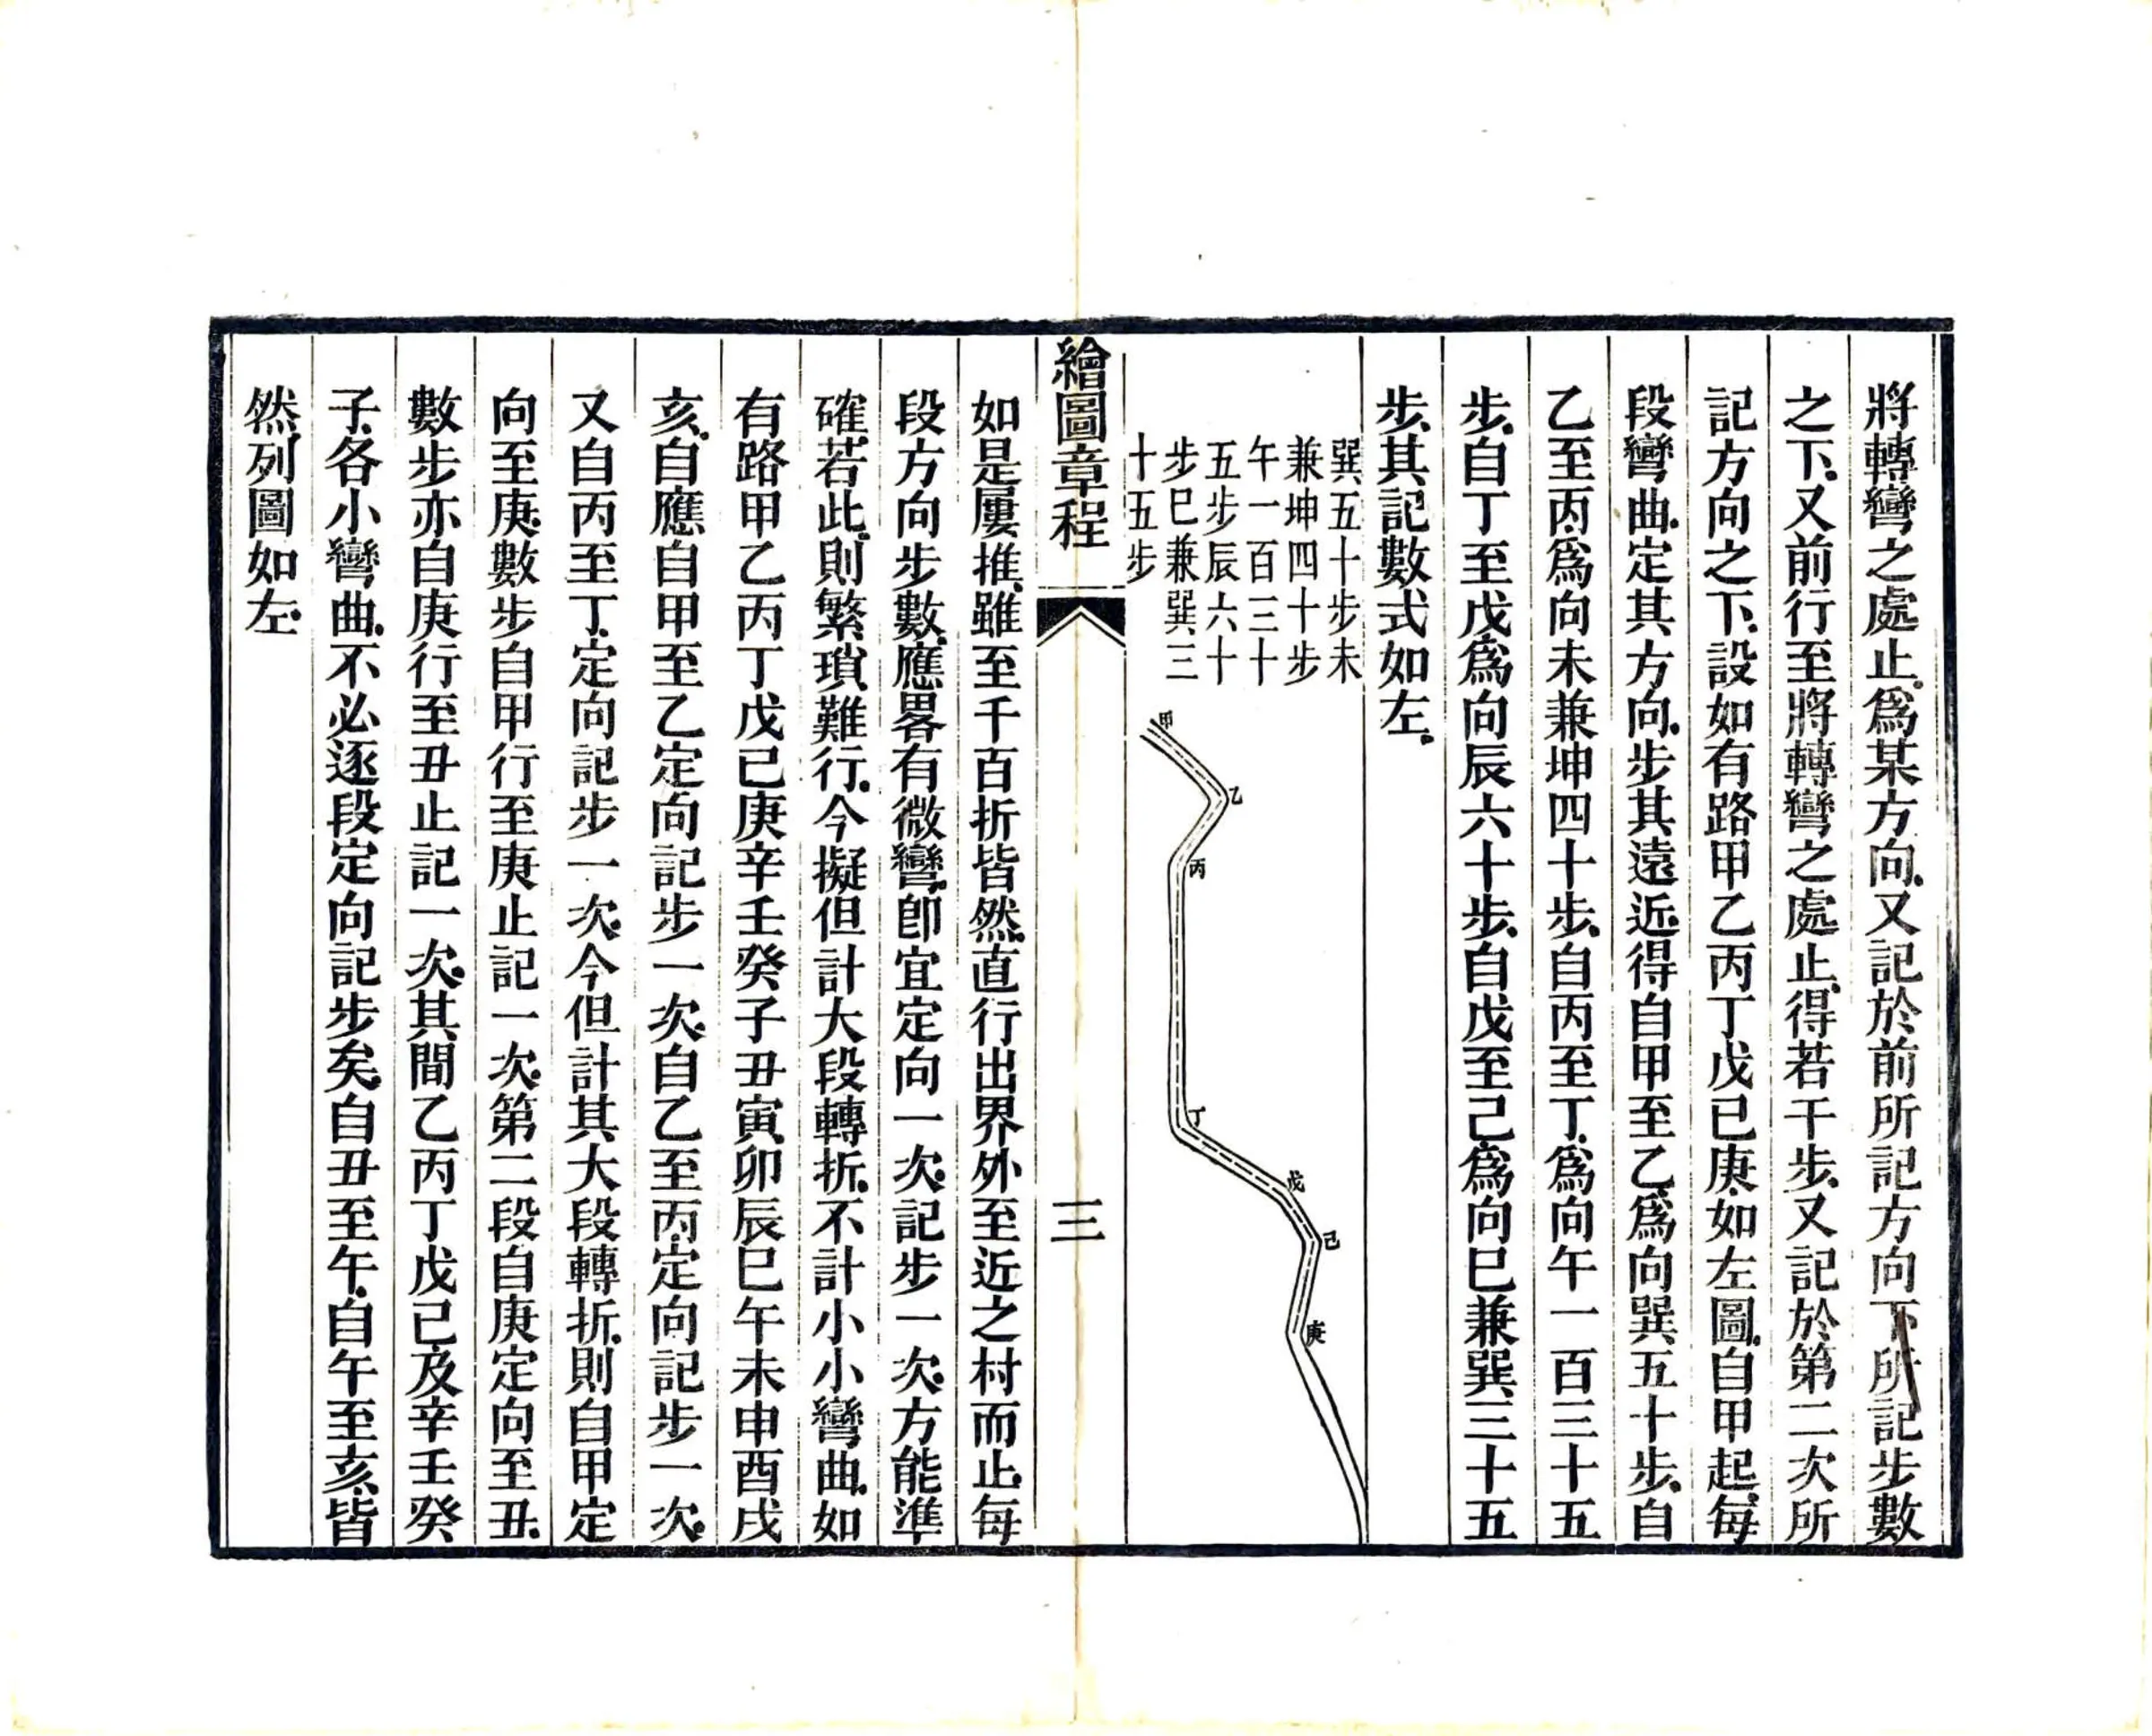 將轉彎之處止.爲某方向.又記於前所記方向下所記步數
之下.又前行至將轉彎之處止.得若干步.又記於第二次所
記方向之下.設如有路甲乙丙丁戊己庚.如左圖.自甲起.每
段彎曲.定其方向.步其遠近.得自甲至乙.爲向巽五十步.自
乙至丙.爲向未兼坤四十步.自丙至丁.爲向午一百三十五
步.自丁至戊.爲向辰六十步.自戊至己.爲向巳兼巽三十五
步.其記數式如左.
巽五十步未
兼坤四十步
午一百三十
五步辰六十
步巳兼巽三
十五步
甲
乙
丙
丁
戊
己
庚
繪圖章程
三
如是屢推.雖至千百折皆然.直行出界外至近之村而止.每
段方向步數.應畧有微彎.卽宜定向一次.記步一次.方能準
確.若此.則繁瑣難行.今擬但計大段轉折.不計小小彎曲.如
有路甲乙丙丁戊己庚辛壬癸子丑寅卯辰巳午未申酉戌
亥.自應自甲至乙定向記步一次.自乙至丙.定向記步一次.
又自丙至丁.定向記步一次.今但計其大段轉折.則自甲定
向至庚.數步自甲行至庚止記一次.第二段自庚定向至丑.
數步亦自庚行至丑止記一次.其間乙丙丁戊己及辛壬癸
子.各小彎曲.不必逐段定向記步矣.自丑至午.自午至亥.皆
然.列圖如左.